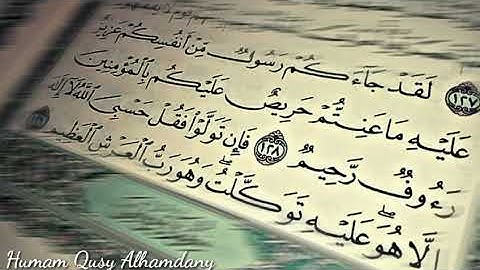 ١٢٧ لَقَدْ جَآءَكُمْ رَسُولٌ مِّنْ أَنفُسِكُمْ عَزِيزٌ
عَلَيْهِ مَا عَنِتُّمْ حَرِيصٌ عَلَيْكُم بِالْمُؤْمِنِينَ
رَءُوفٌ رَّحِيمٌ ١٢٨ فَإِن تَوَلَّوْا فَقُلْ حَسْبِيَ اللَّهُ لَآ إِلَٰهَ
إِلَّا هُوَ ۖ عَلَيْهِ تَوَكَّلْتُ ۖ وَهُوَ رَبُّ الْعَرْشِ الْعَظِيمِ
Humam Qusy Alhamdany